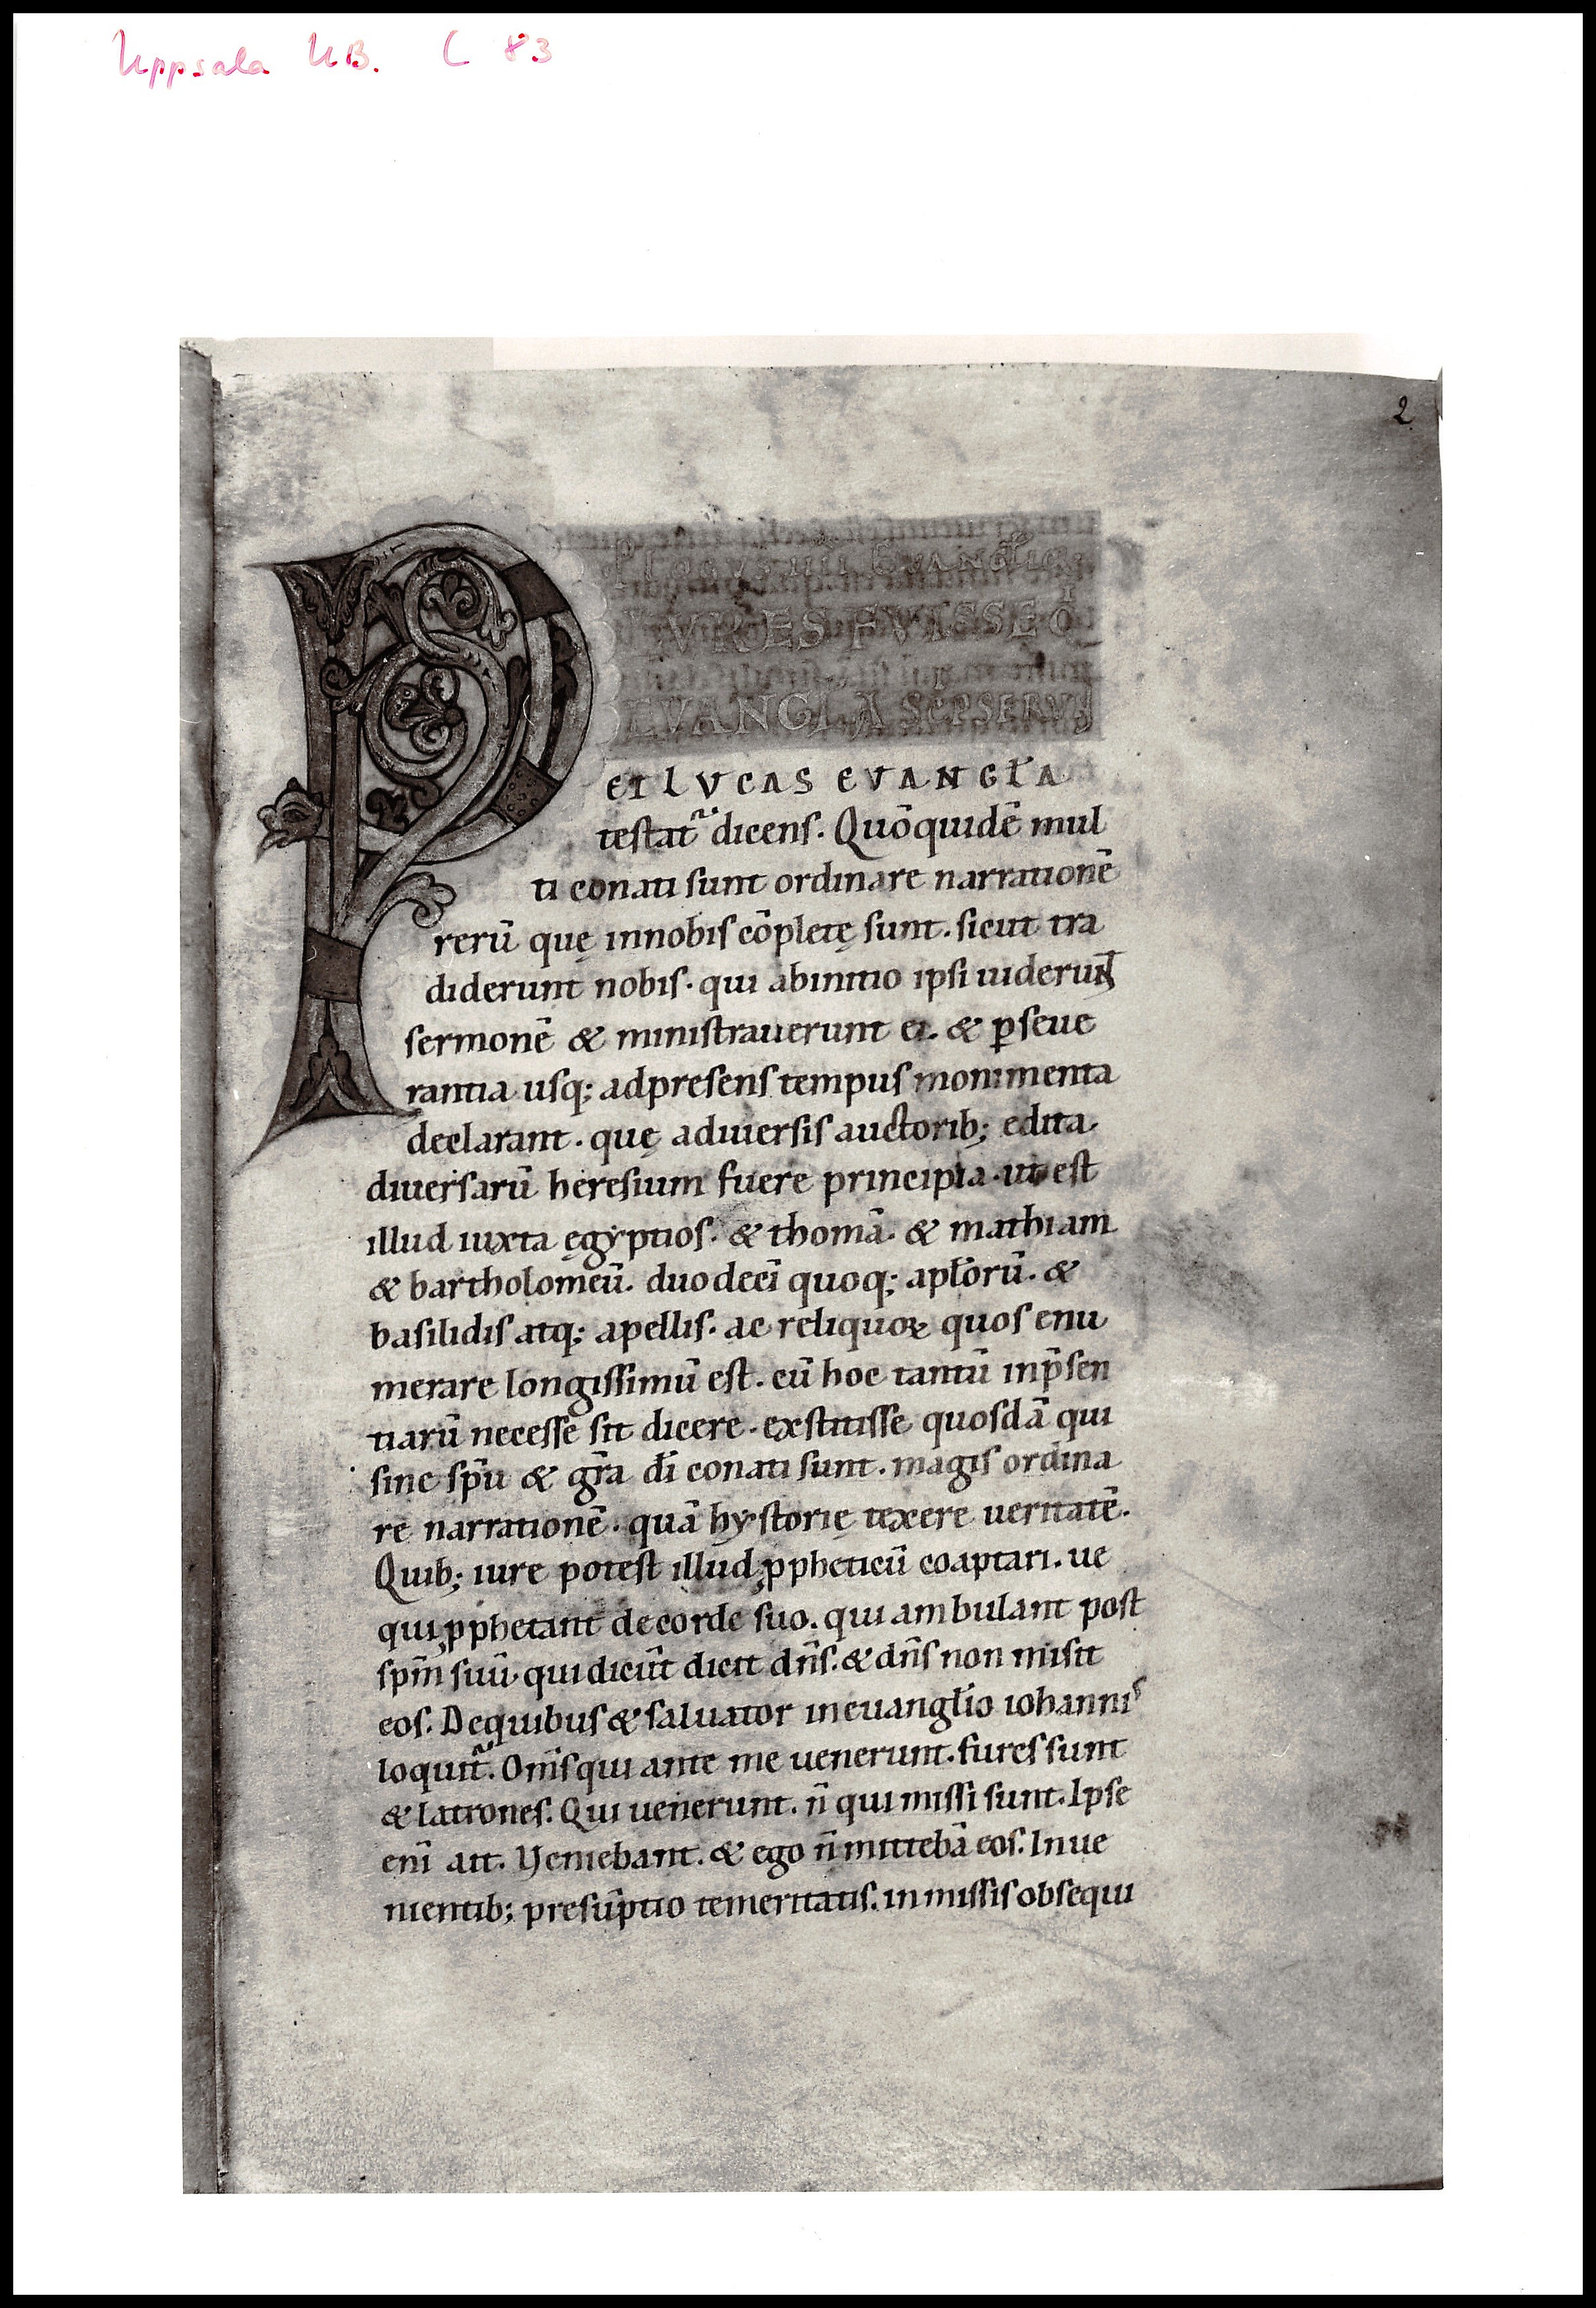 Uppsala UB. C 83
2
P
VRES FVISSE Q̄I
EVANGL̄A SC̄PSERVN̄
ET LVCAS EVANGL̄A
testat᷑ dicens. Quō quidē mul
ti conati sunt ordinare narrationē
rerū quę in nobis cōpletę sunt. sicut tra
diderunt nobis. qui ab initio ipsi uiderunt
sermonē & ministrauerunt ei. & ꝑseue
rantia usq; ad presens tempus monimenta
declarant. quę a diuersis auctorib; edita.
diuersarū heresium fuere principia. ut est
illud iuxta ęgyptios. & thomā. & mathiam
& bartholomeū. duodecī quoq; apl̄orū. &
basilidis atq; apellis. ac reliquoꝝ quos enu
merare longissimū est. cū hoc tantū in p̄sen
tiarū necesse sit dicere. exstitisse quosdā qui
sine sp̄u & gr̄a dī conati sunt. magis ordina
re narrationē. quā hystorię texere ueritatē.
Quib; iure potest illud ꝓpheticū coaptari. ue
qui ꝓphetant de corde suo. qui ambulant post
sp̄m suū. qui dicūt dicit dn̄s. & dn̄s non misit
eos. De quibus & saluator in euangl̄io iohannis
loquit᷑. Om̄s qui ante me uenerunt. fures sunt
& latrones. Qui uenerunt. n̄ qui missi sunt. Ipse
enī ait. Veniebant. & ego n̄ mittebā eos. In ue
nientib; presūptio temeritatis. in missis obsequi